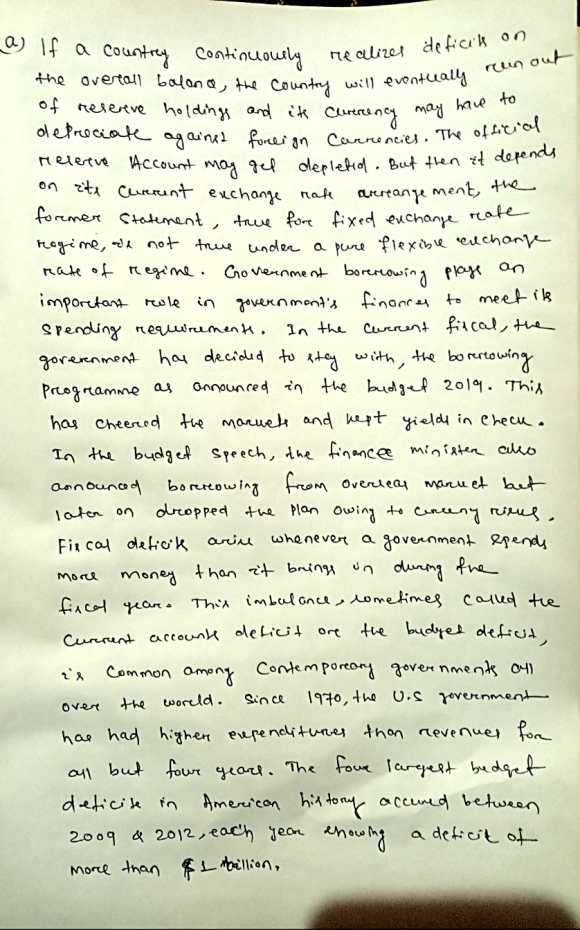 a) If a country continuously realizes deficits on
the overall balance, the country will eventually run out
of reserve holdings and its currency may have to
depreciate against foreign currencies. The official
reserve Account may get depleted. But then it depends
on its current exchange rate arrangement, the
former statement, true for fixed exchange rate
regime, is not true under a pure flexible exchange
rate of regime. Government borrowing plays an
important role in government's finances to meet its
spending requirements. In the current fiscal, the
government has decided to stay with, the borrowing
programme as announced in the budget 2019. This
has cheered the markets and kept yields in check.
In the budget speech, the finance minister also
announced borrowing from overseas market but
later on dropped the plan owing to risks.
Fiscal deficits arise whenever a government spends
more money than it brings in during the
fiscal year. This imbalance, sometimes called the
current accounts deficit or the budget deficit,
is common among contemporary governments all
over the world. Since 1970, the U.S government
has had higher expenditures than revenues for
all but four years. The four largest budget
deficits in American history occured between
2009 & 2012, each year showing a deficit of
more than $1